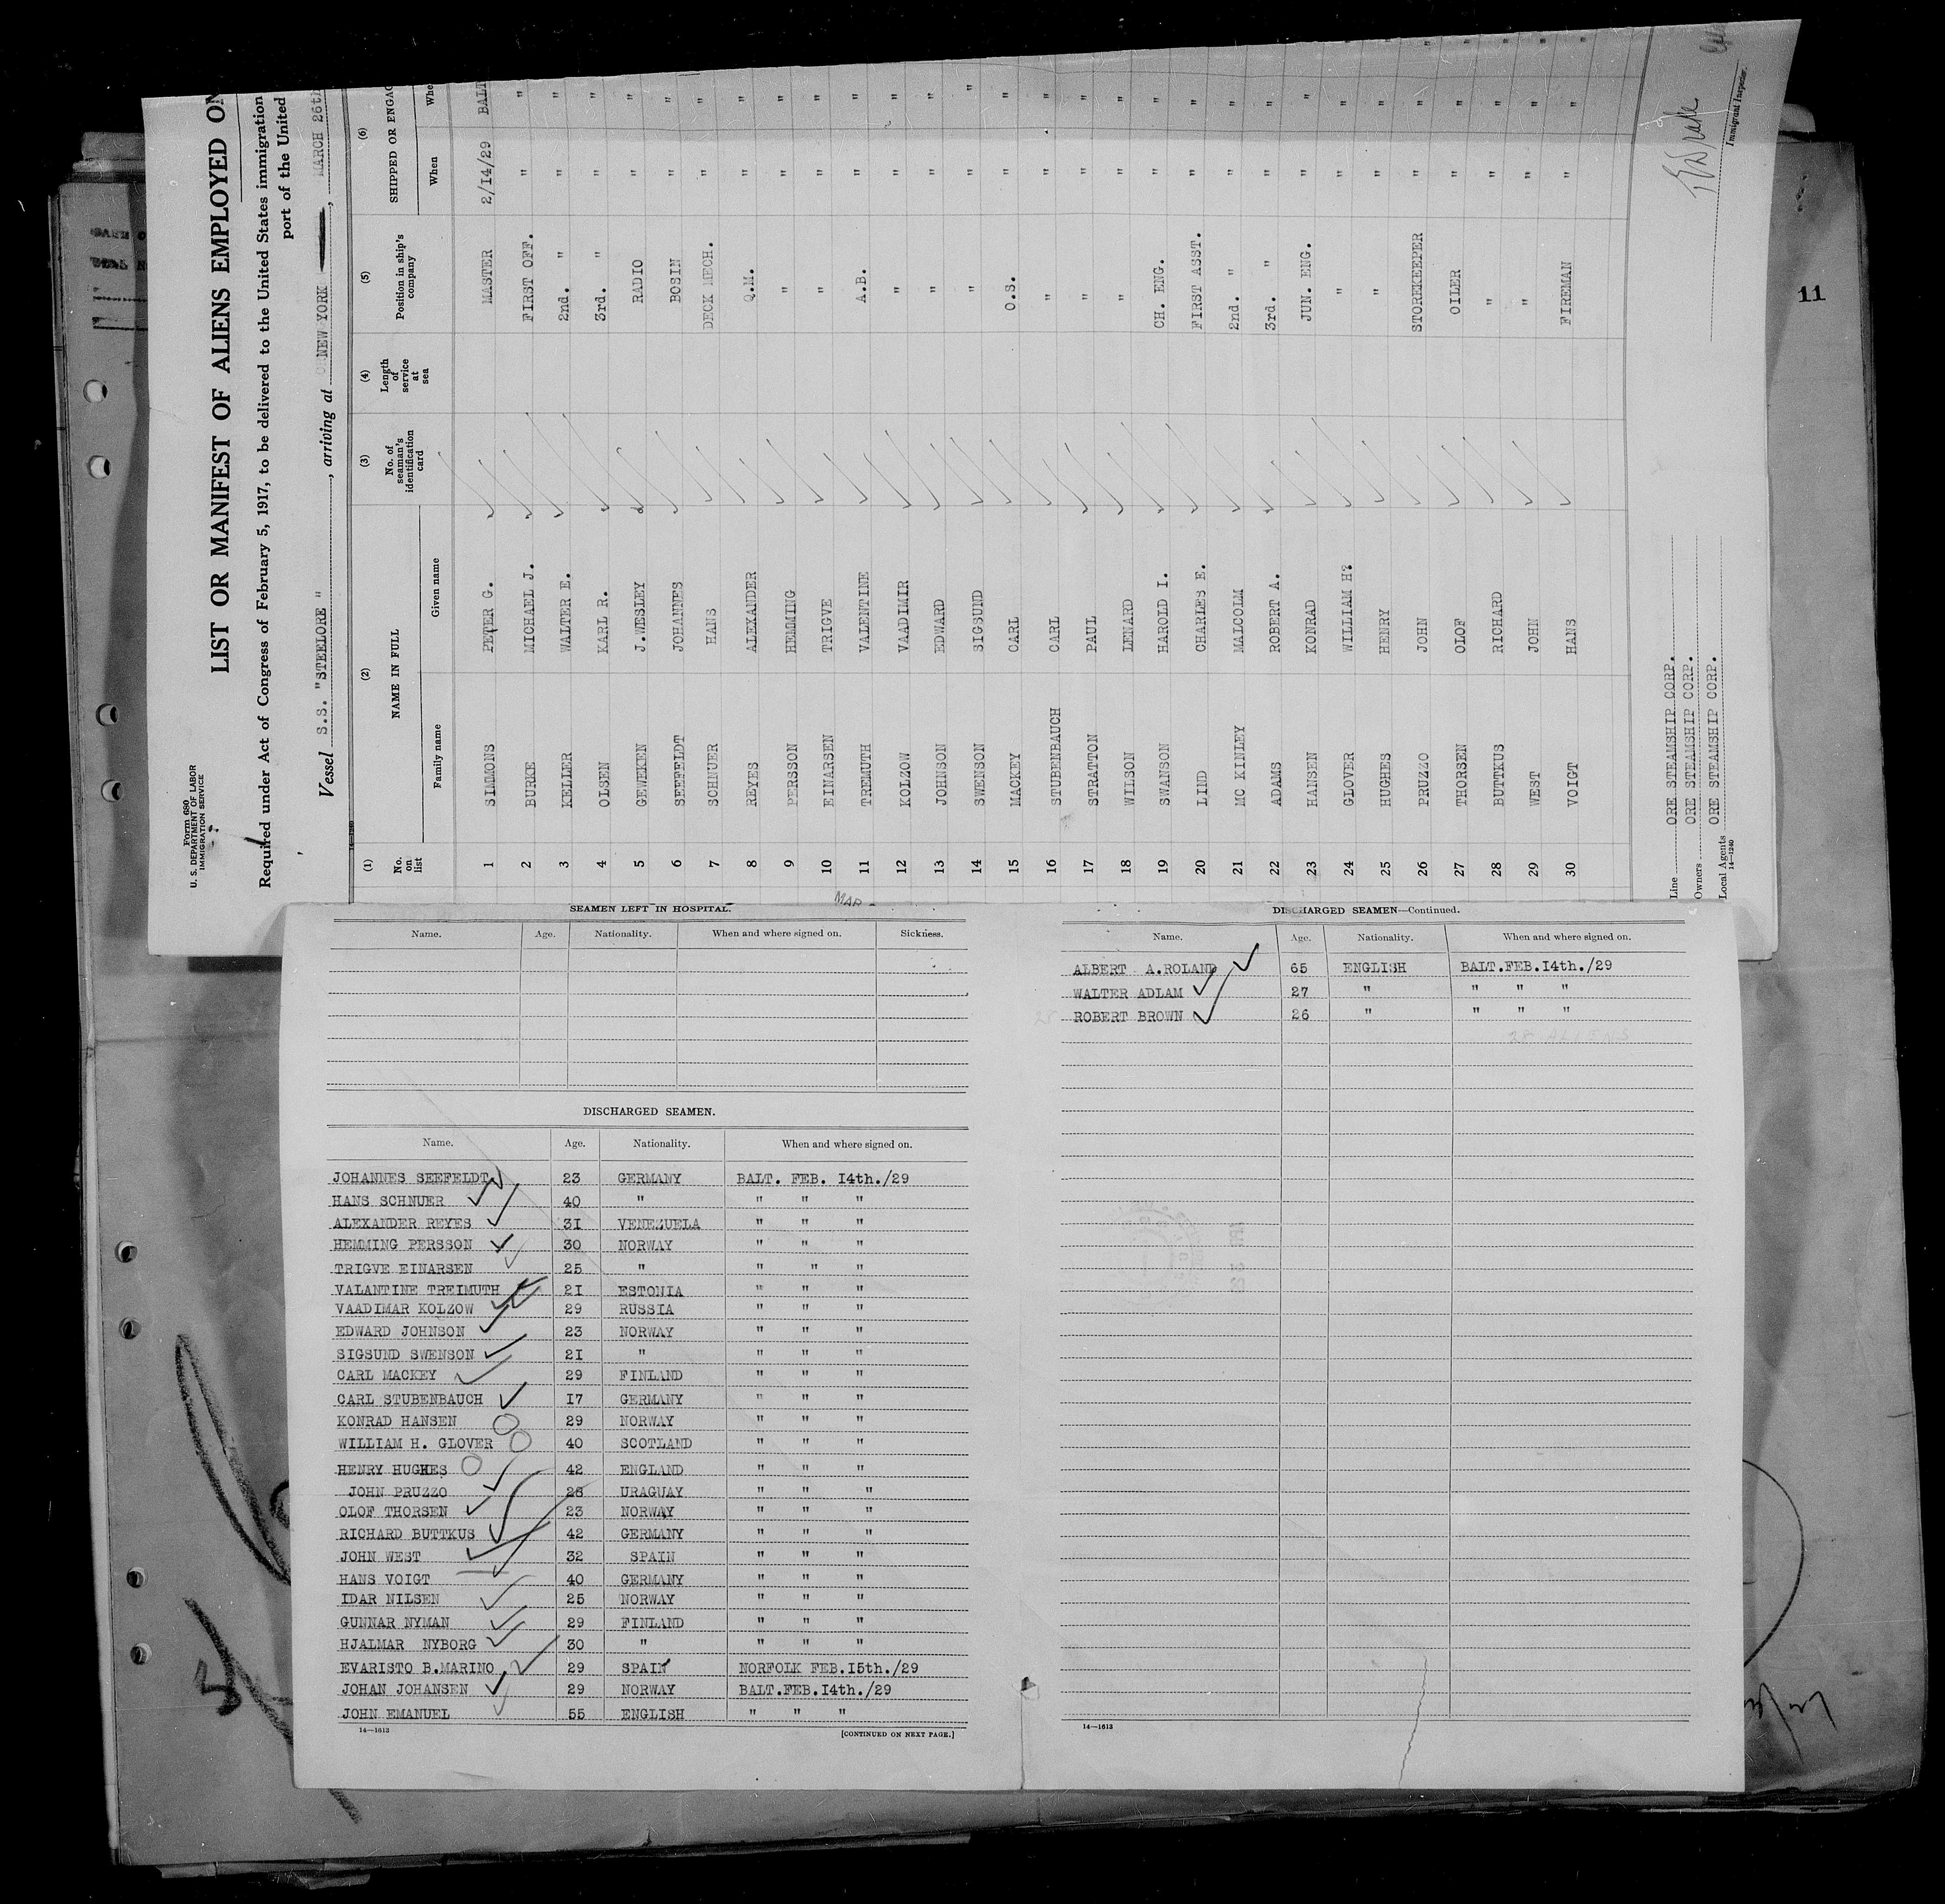 Form 680
U. S. DEPARTMENT OF LABOR
IMMIGRATION SERVICE
LIST OR MANIFEST OF ALIENS EMPLOYED ON
Required under Act of Congress of February 5, 1917, to be delivered to the United States immigration
port of the United
Vessel S.S. "STEELORE ", arriving at NEW YORK, MARCH 26th
(1) (2) (3) (4) (5) (6)
No. on list NAME IN FULL No. of seaman's identification card Length of service at sea Position in ship's company SHIPPED OR ENGAG
Family name Given name When Whe
1 SIMMONS PETER G. MASTER 2/14/29 BALT
2 BURKE MICHAEL J. FIRST OFF. " "
3 KELLER WALTER E. 2nd. " " "
4 OLSEN KARL R. 3rd. " " "
5 GEWEKEN J.WESLEY RADIO " "
6 SEEFELDT JOHANNES BOSIN " "
7 SCHNUER HANS DECK MECH. " "
8 REYES ALEXANDER Q.M. " "
9 PERSSON HEMMING " " "
10 EINARSEN TRIGVE " " "
11 TREMUTH VALENTINE A.B. " "
12 KOLZOW VAADIMIR " " "
13 JOHNSON EDWARD " " "
14 SWENSON SIGSUND " " "
15 MACKEY CARL O.S. " "
16 STUBENBAUCH CARL " " "
17 STRATTON PAUL " " "
18 WILSON LENARD " " "
19 SWANSON HAROLD I. CH. ENG. " "
20 LIND CHARLES E. FIRST ASST. " "
21 MC KINLEY MALCOLM 2nd. " " "
22 ADAMS ROBERT A. 3rd. " " "
23 HANSEN KONRAD JUN. ENG. " "
24 GLOVER WILLIAM H? " " "
25 HUGHES HENRY " " "
26 PRUZZO JOHN STOREKEEPER " "
27 THORSEN OLOF OILER " "
28 BUTTKUS RICHARD " " "
29 WEST JOHN " " "
30 VOIGT HANS FIREMAN " "
Line ORE STEAMSHIP CORP.
Owners ORE STEAMSHIP CORP.
Local Agents ORE STEAMSHIP CORP.
14—1240
Immigrant Inspector.
11
MAR
SEAMEN LEFT IN HOSPITAL.
Name. Age. Nationality. When and where signed on. Sickness.
DISCHARGED SEAMEN.
Name. Age. Nationality. When and where signed on.
JOHANNES SEEFELDT 23 GERMANY BALT. FEB. 14th./29
HANS SCHNUER 40 " " " "
ALEXANDER REYES 31 VENEZUELA " " "
HEMMING PERSSON 30 NORWAY " " "
TRIGVE EINARSEN 25 " " " "
VALANTINE TREIMUTH 21 ESTONIA " " "
VAADIMAR KOLZOW 29 RUSSIA " " "
EDWARD JOHNSON 23 NORWAY " " "
SIGSUND SWENSON 21 " " " "
CARL MACKEY 29 FINLAND " " "
CARL STUBENBAUCH 17 GERMANY " " "
KONRAD HANSEN 29 NORWAY " " "
WILLIAM H. GLOVER 40 SCOTLAND " " "
HENRY HUGHES 42 ENGLAND " " "
JOHN PRUZZO 28 URAGUAY " " "
OLOF THORSEN 23 NORWAY " " "
RICHARD BUTTKUS 42 GERMANY " " "
JOHN WEST 32 SPAIN " " "
HANS VOIGT 40 GERMANY " " "
IDAR NILSEN 25 NORWAY " " "
GUNNAR NYMAN 29 FINLAND " " "
HJALMAR NYBORG 30 " " " "
EVARISTO B.MARINO 29 SPAIN NORFOLK FEB.15th./29
JOHAN JOHANSEN 29 NORWAY BALT.FEB.14th./29
JOHN EMANUEL 55 ENGLISH " " "
14—1613 [CONTINUED ON NEXT PAGE.]
DISCHARGED SEAMEN—Continued.
Name. Age. Nationality. When and where signed on.
ALBERT A.ROLAND 65 ENGLISH BALT.FEB.14th./29
WALTER ADLAM 27 " " " "
ROBERT BROWN 26 " " " "
28 ALIENS
14—1613